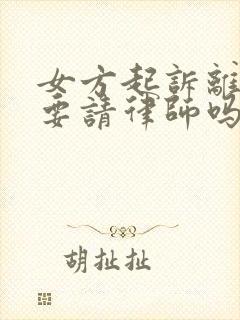 女方起訴離
要請律師嗎
胡扯扯